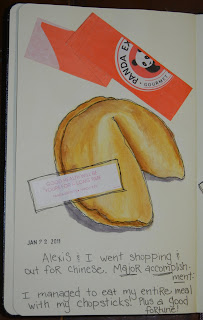 PANDA EX
GOURMET
JAN 2 2011
Alexis & I went shopping &
out for Chinese. Major accomplish-
ment.
I managed to eat my entire meal
with my chopsticks! Plus a good
fortune!